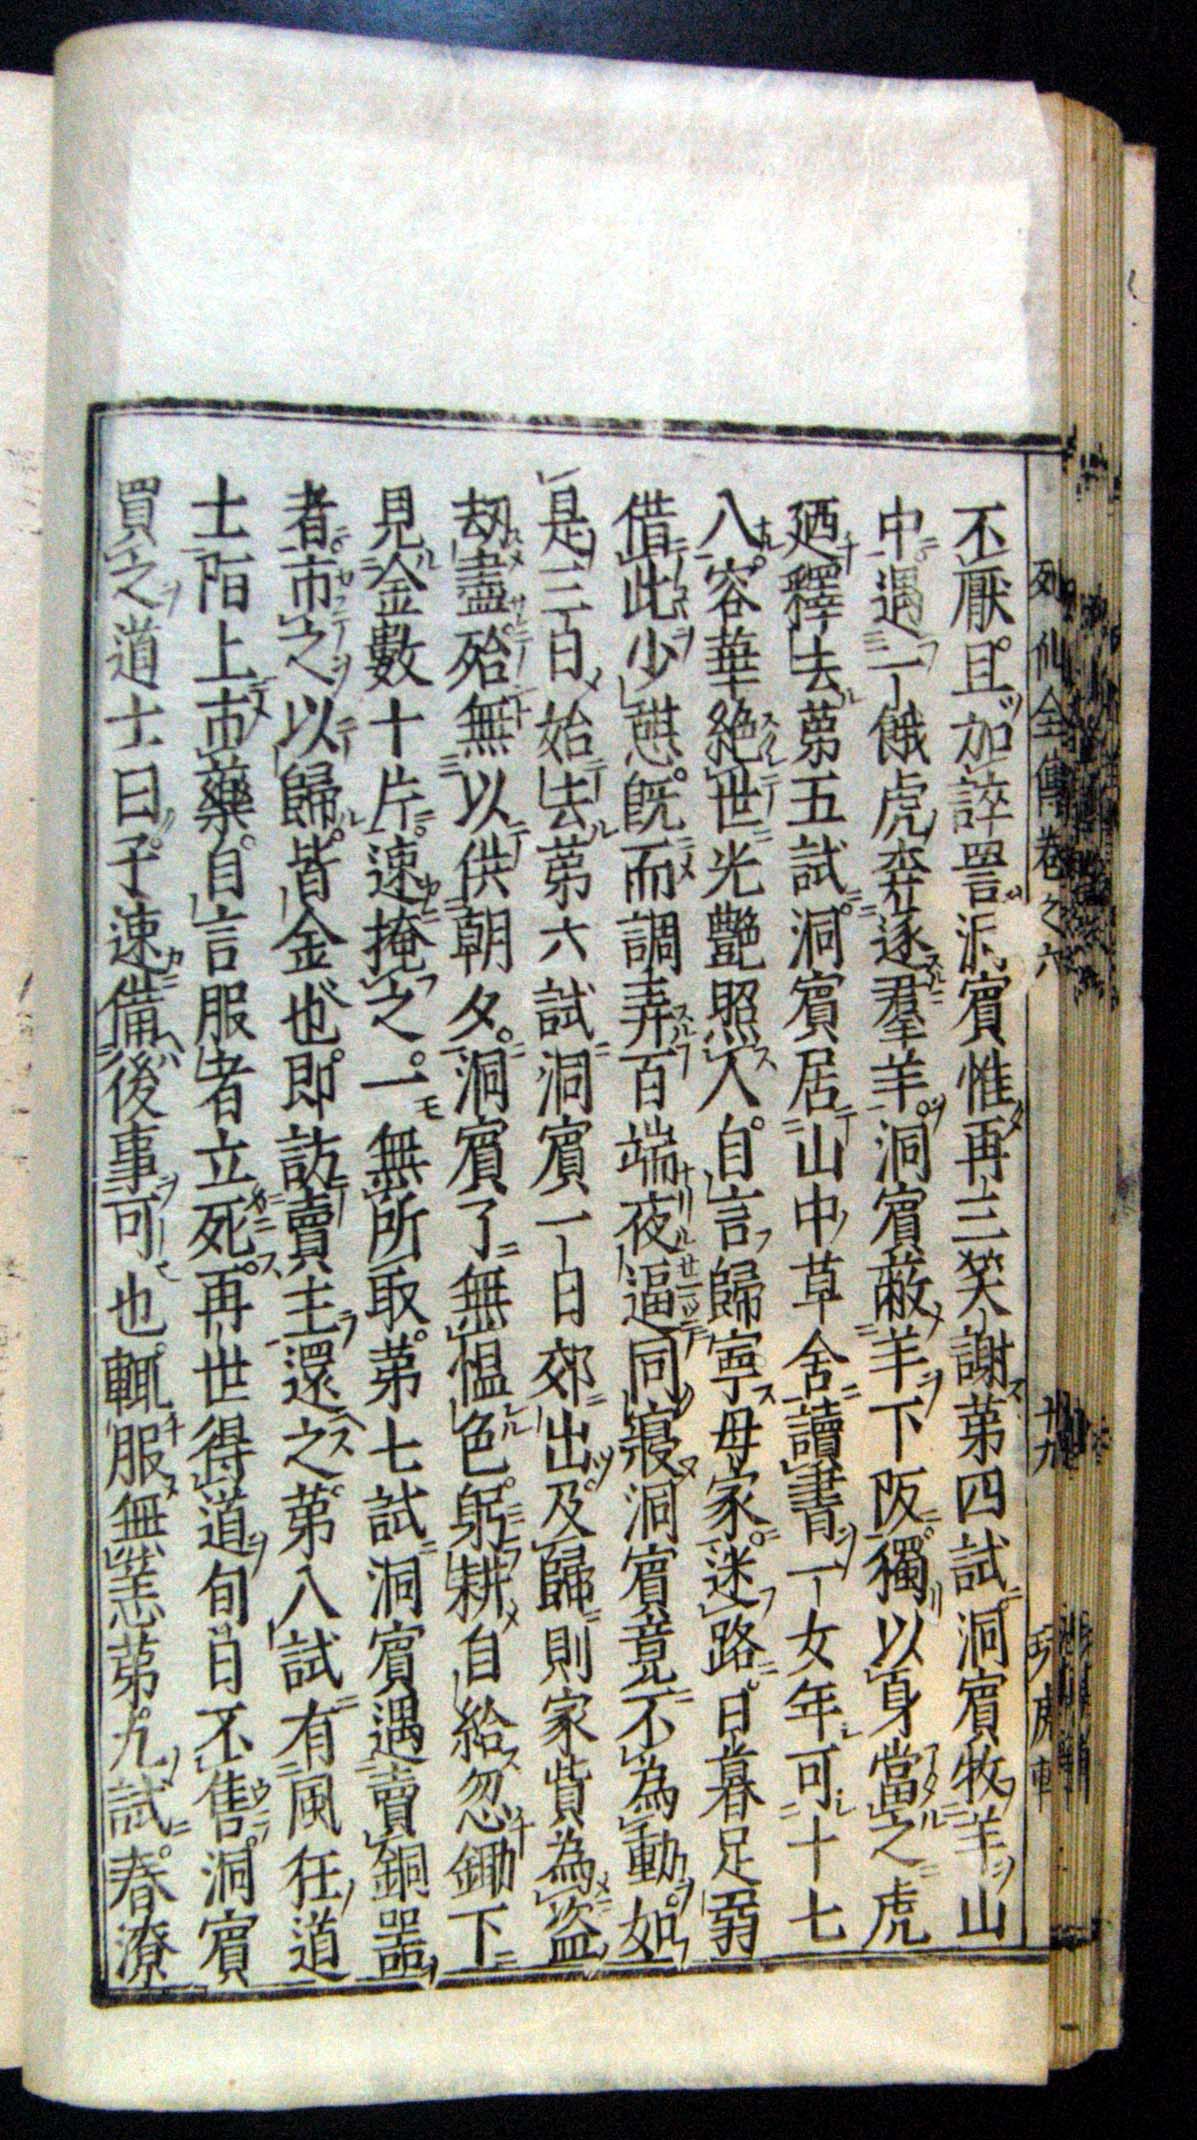 列仙全傳卷之六 十九
不厭且加誶詈洞賓惟再三笑謝苐四試洞賓牧羊山
中遇一餓虎奔逐羣羊洞賓蔽羊下阪獨以身當之虎
廼釋去苐五試洞賓居山中草舍讀書一女年可十七
八容華絶世光艷照人自言歸寧母家迷路日暮足弱
借此少憇旣而調弄百端夜逼同寢洞賓竟不為動如
是三日始去苐六試洞賓一日郊出及歸則家貲為盜
刼盡殆無以供朝夕洞賓了無慍色躬耕自給忽鋤下
見金數十片速掩之一無所取苐七試洞賓遇賣銅器
者市之以歸皆金也即訪賣主還之苐八試有風狂道
士陌上市藥自言服者立死再世得道旬日不售洞賓
買之道士曰子速備後事可也輒服無恙苐九試春潦